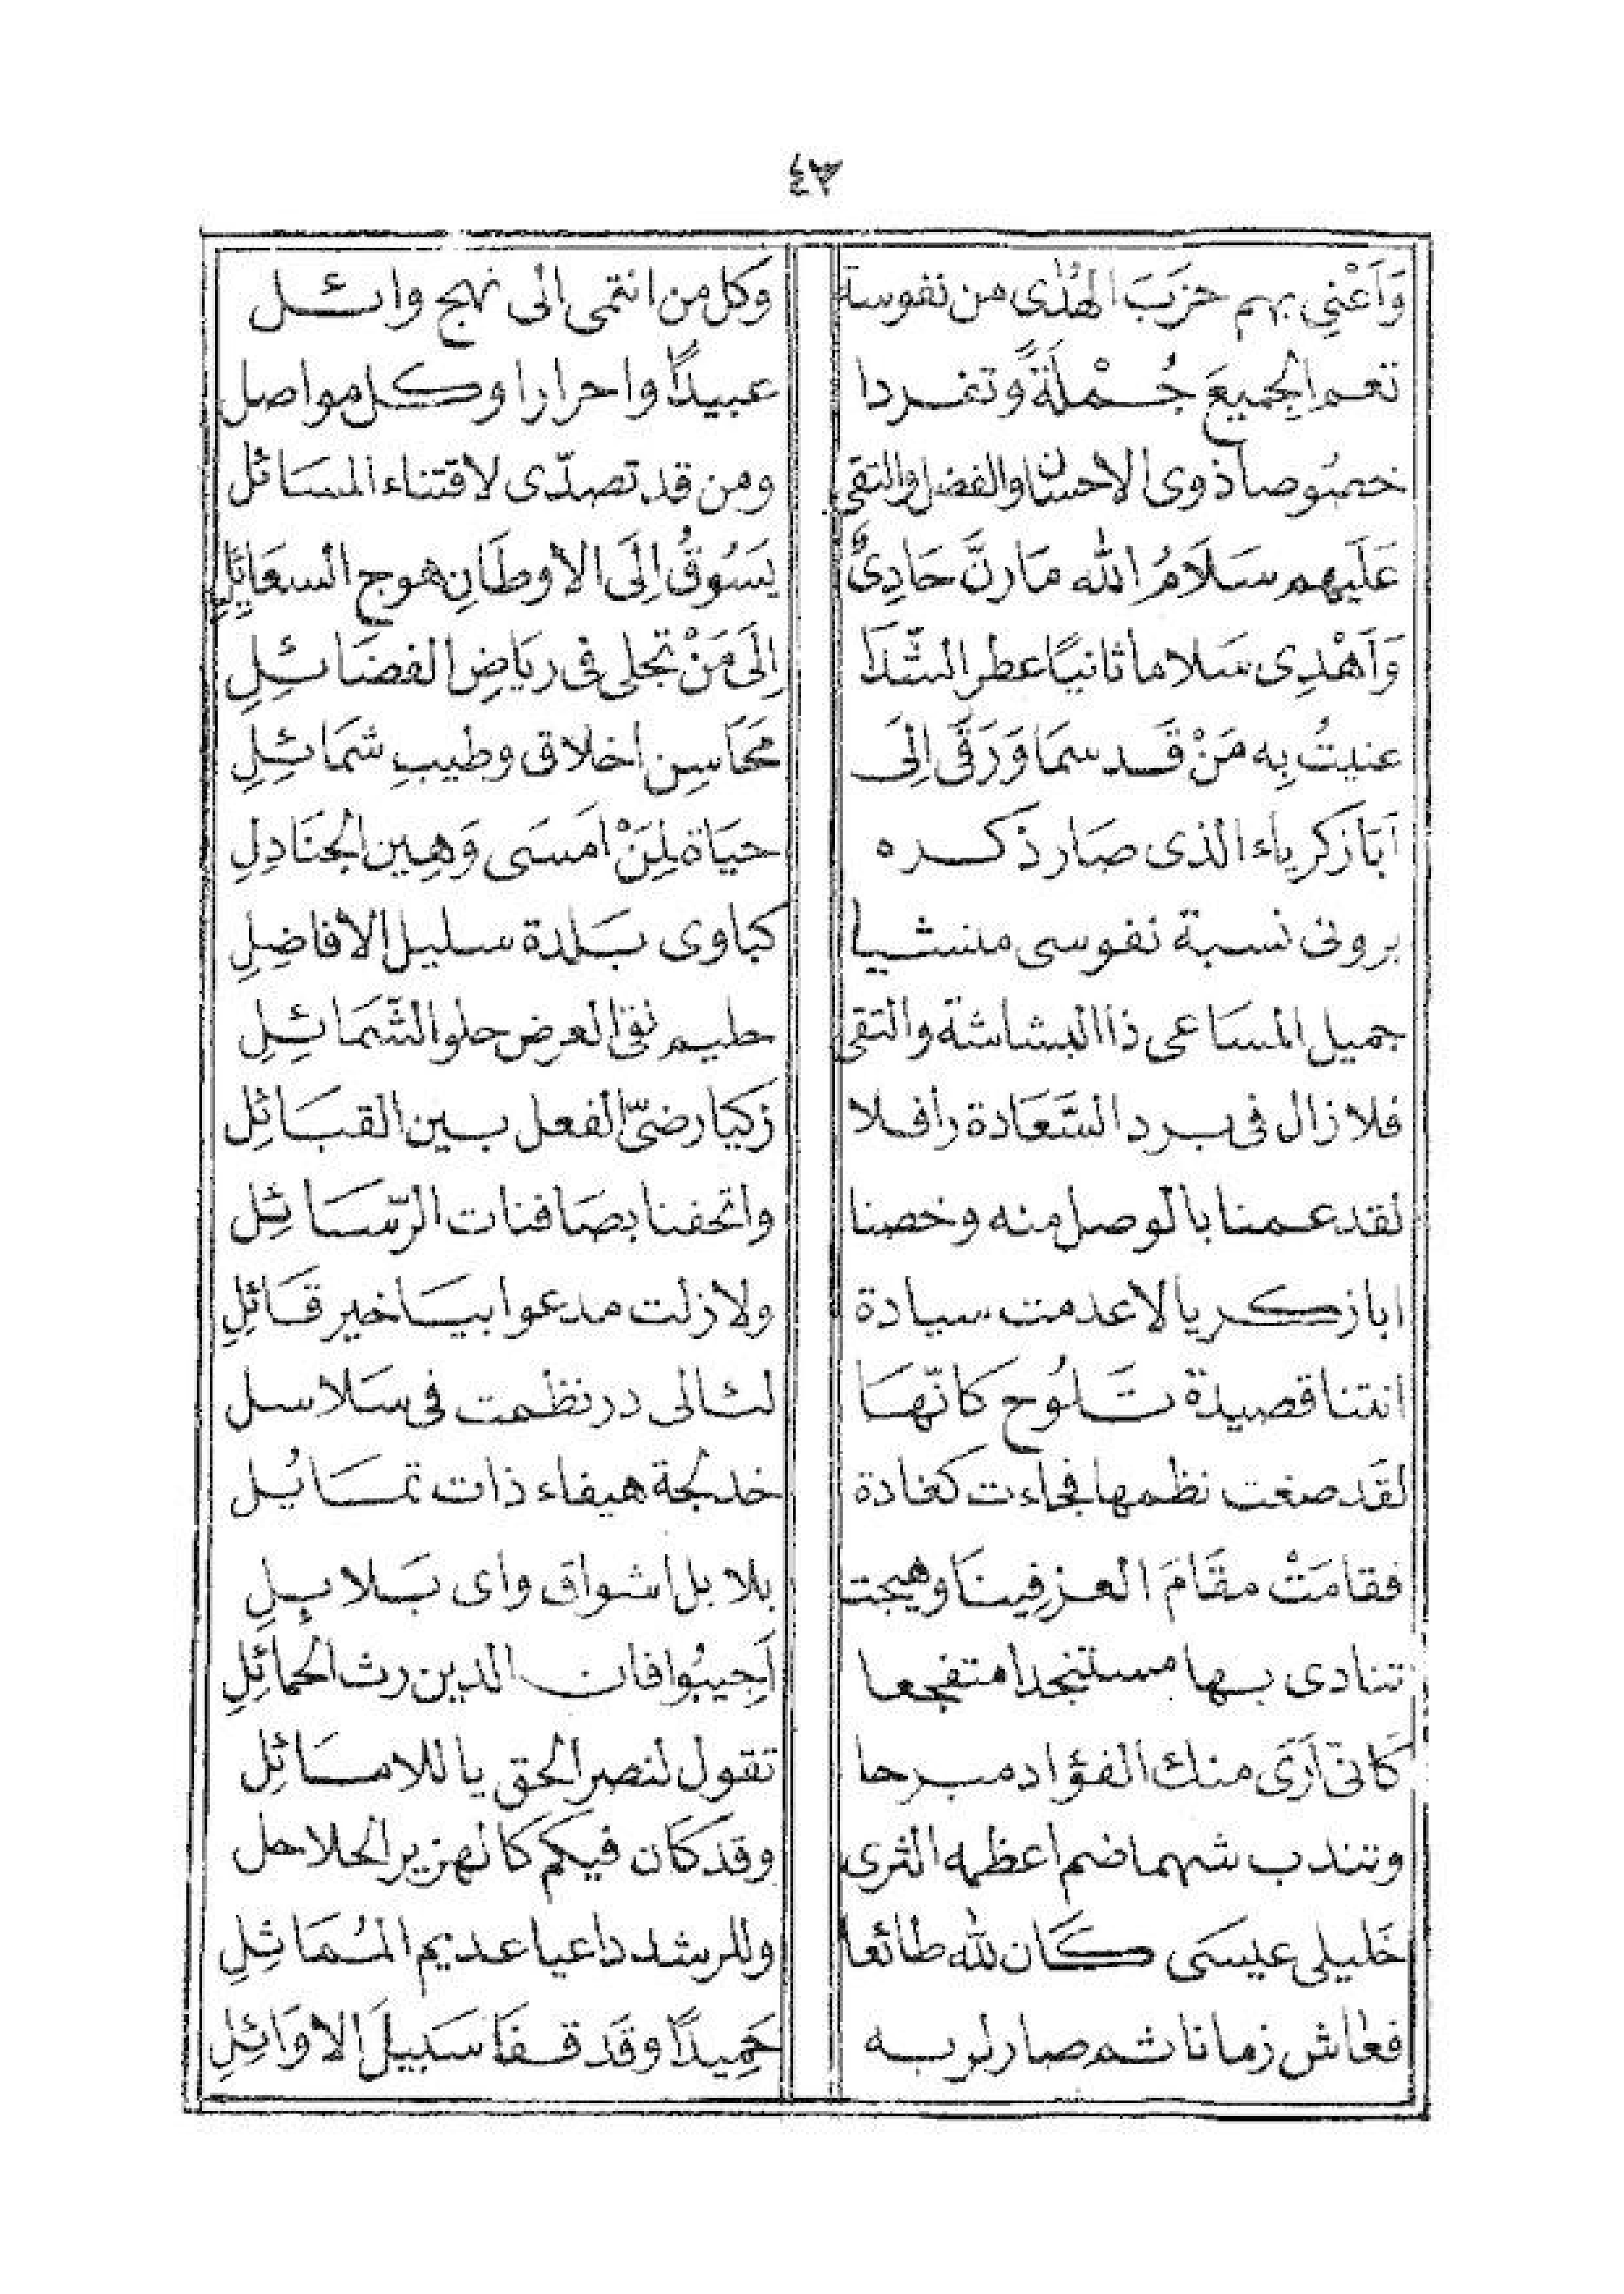 ٤٣
وَاَعْنِي بهم حزَبَ الهُدٰى من نفوسة وَكل من انتمى الى نهج وائل
تعم الجميعَ جُمْلَةً وتفردا عبيدًا واحرارا وكل مواصل
خصُوصا ذوى الاحسان والفضل والتقى ومن قد تصدّى لاقتناء المسَائل
عَلَيهم سَلَامُ الله مَا رنَّ حَادِىٌ يَسُوقُ اِلَى الاوطَانِ هوج السعَائِلِ
وَاَهْدِى سَلاما ثانيًا عطر الشّذَا اِلَى مَنْ تجلى فى ريَاضِ الفضَائِلِ
عنيتُ بِه مَنْ قَد سمَا وَرَقَى اِلَى محَاسِن اخلاق وطيبِ شمَائِلِ
اَبَا زكرياء الذى صَار ذكره حيَاة لِمَنْ امَسَى وَهِين الجنَادِلِ
برونى نسبة نفوسى منشيا كباوى بَلدة سليل الأفاضِلِ
جميل المسَاعى ذا البشاشة والتقى حليم نقى العرض حلو الشّمَائِلِ
فلا زال فى برد السَّعَادة رافلا زكيا رضىّ الفعل بين القبَائِل
لقد عمنا بالوصل منه وخصنا واتحفنا بصَافنات الرّسَائِل
ابا زكريا لا عدمت سيادة ولا زلت مدعوا بيَا خير قَائِلِ
اتتنا قصيدة تَلُوح كانّهَا لئالى در نظمت فى سَلاسل
لقَد صغت نظمها فجاءت كغادة خدلجة هيفاء ذات تمَايُل
فقامَتْ مقَامَ العز فِينَا وهيجت بلابل اشواق واى بَلابِلِ
تنادى بها مستنجدا متفجعا اَجِيبُوا فان الدين رث الحمائِلِ
كَانى اَرَى منك الفؤاد مبرحا تقول لنصر الحق يا للامَاثِل
وتندب شهما ضم اعظمه الثرى وقد كَان فيكم كَالهزير الحلاحل
خَليلى عيسَى كَان لله طائعا وللرشد داعيا عديم المُمَاثِلِ
فعاش زمانا ثم صار لربه حَمِيدًا وقَد قفَا سَبيلَ الاوَائِلِ